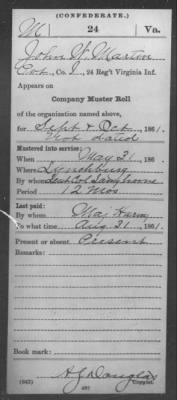 (CONFEDERATE.)
M 24 Va.
John W. Martin
Co. , 24 Reg't Virginia Inf.
Appears on
Company Muster Roll
of the organization named above,
for Sept & Oct, 1861.
dated
Mustered into service:
When May 21, 186
Where Lynchburg
By whom Lieut Col Langhorne
Period 12 Mos
Last paid:
By whom Maj
To what time Aug 31, 1861.
Present or absent Present
Remarks:
Book mark:
(642) A J Douglas
Copyist.